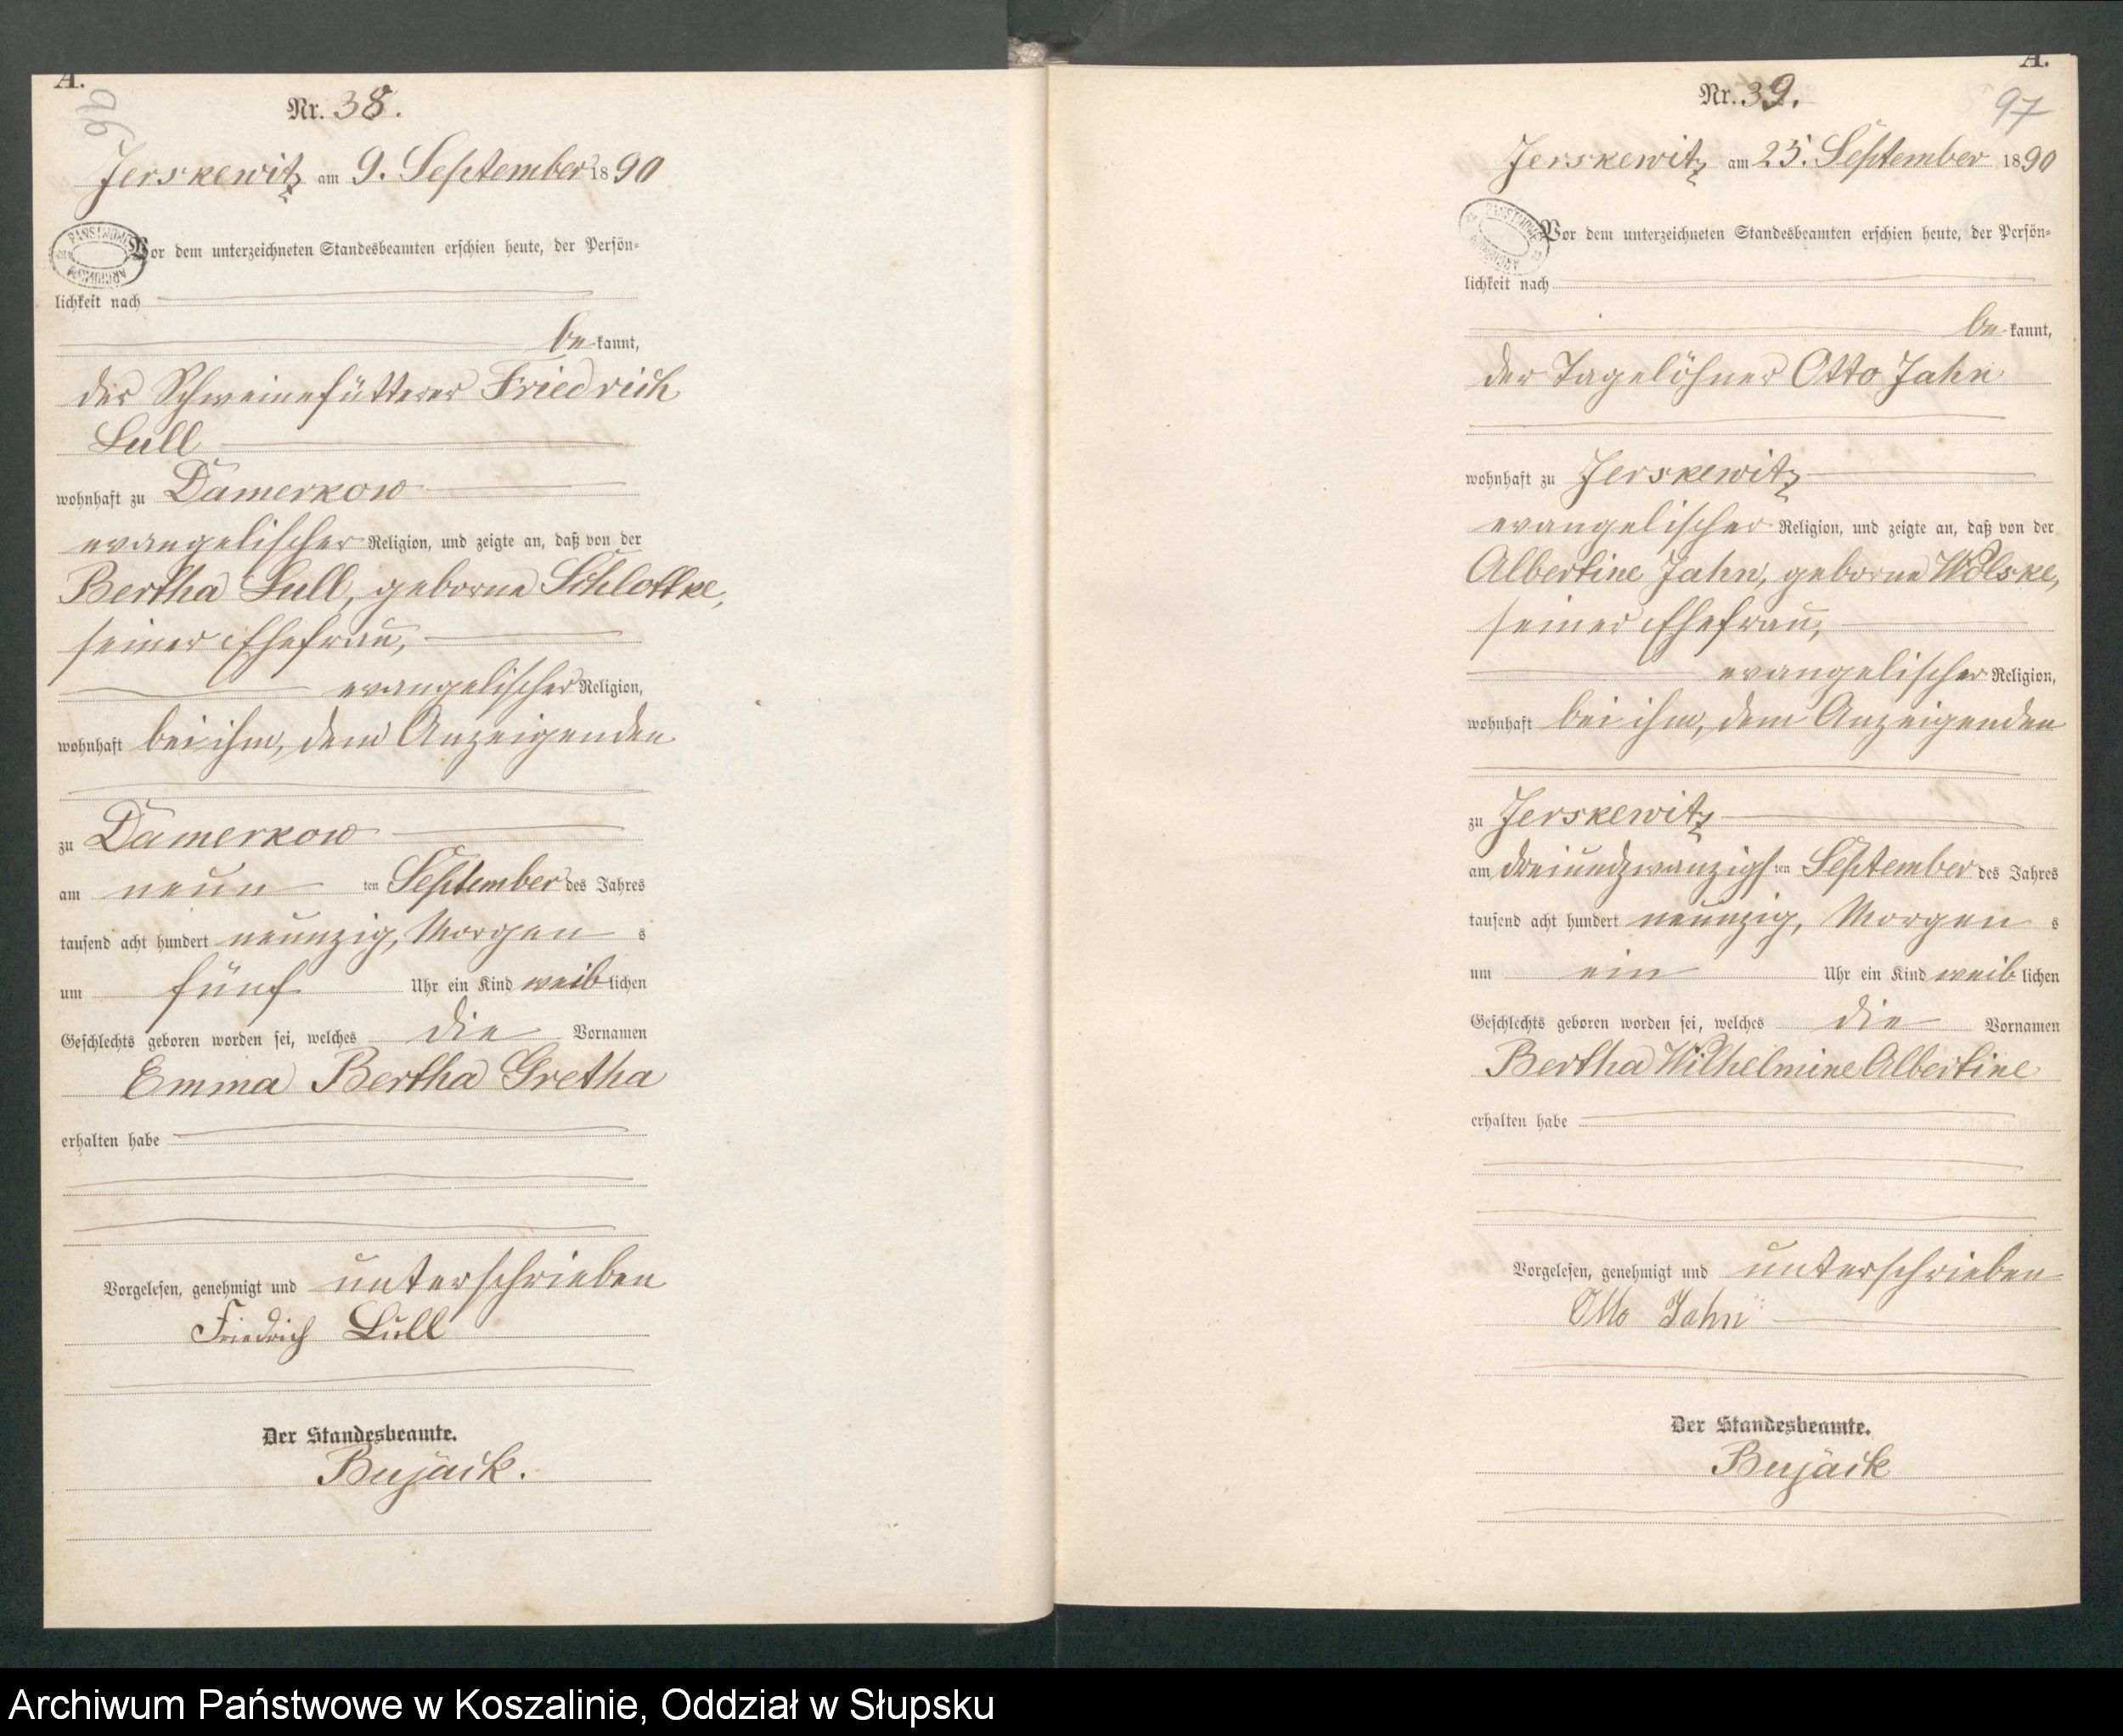 A.
96
Nr. 38.
Jerskewitz am 9. September 1890
Vor dem unterzeichneten Standesbeamten erschien heute, der Persön-
lichkeit nach
be kannt,
der Schweinefütterer Friedrich
Lull
wohnhaft zu Damerkow
evangelischer Religion, und zeigte an, daß von der
Bertha Lull, geborne Schlottke,
seiner Ehefrau,
evangelischer Religion,
wohnhaft bei ihm, dem Anzeigenden
zu Damerkow
am neun ten September des Jahres
tausend acht hundert neunzig, Morgen s
um fünf Uhr ein Kind weib lichen
Geschlechts geboren worden sei, welches die Vornamen
Emma Bertha Gretha
erhalten habe
Vorgelesen, genehmigt und unterschrieben
Friedrich Lull
Der Standesbeamte.
Bujack.
A.
97
Nr. 39.
Jerskewitz am 25. September 1890
Vor dem unterzeichneten Standesbeamten erschien heute, der Persön-
lichkeit nach
be kannt,
der Tagelöhner Otto Jahn
wohnhaft zu Jerskewitz
evangelischer Religion, und zeigte an, daß von der
Albertine Jahn, geborne Wolske,
seiner Ehefrau,
evangelischer Religion,
wohnhaft bei ihm, dem Anzeigenden
zu Jerskewitz
am dreiundzwanzigs ten September des Jahres
tausend acht hundert neunzig, Morgen s
um ein Uhr ein Kind weib lichen
Geschlechts geboren worden sei, welches die Vornamen
Bertha Wilhelmine Albertine
erhalten habe
Vorgelesen, genehmigt und unterschrieben
Otto Jahn
Der Standesbeamte.
Bujack
Archiwum Państwowe w Koszalinie, Oddział w Słupsku